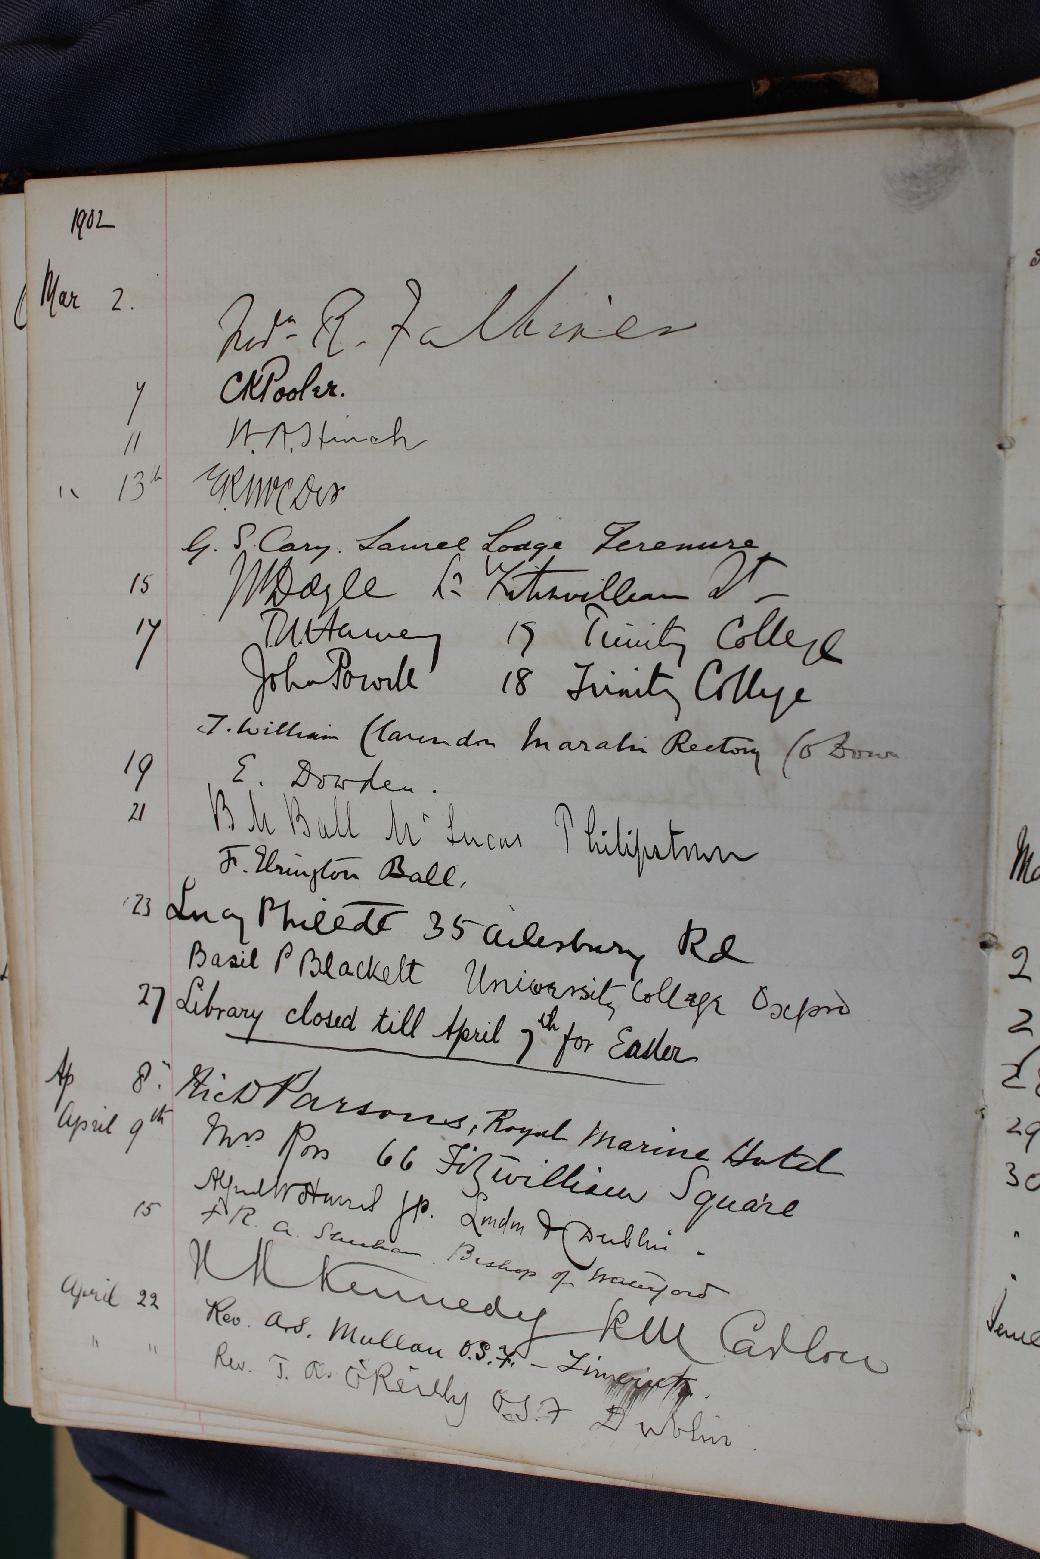 1902
Mar 2.
Fred.n R. Falkiner
7 CKPooler.
11 W. A. Hinch
" 13th
G. S. Cary. Laurel Lodge Terenure
15 Doyle Fitzwilliam St
17 Harvey 19 Trinity College
John Powell 18 Trinity College
T. William Clarendon Maralin Rectory Co Down
19 E. Dowden.
21 B M Ball Mt Lucas Philipstown
F. Elrington Ball.
23 Lucy 35 Ailesbury Rd
Basil P Blackett University College Oxford
27 Library closed till April 7th for Easter
Ap 8. Richd Parsons, Royal Marine Hotel
April 9th Mrs Ross 66 Fitzwilliam Square
Alfred W Harris J.P. London & Dublin.
15 + R. A. Sheehan Bishop of Waterford
Kennedy RM Carlow
April 22 Rev. A.S. Mullan O.S.F. - Limerick.
" " Rev. T. A. O'Reilly O.S.F Dublin.
Ma
2
2
29
30
"